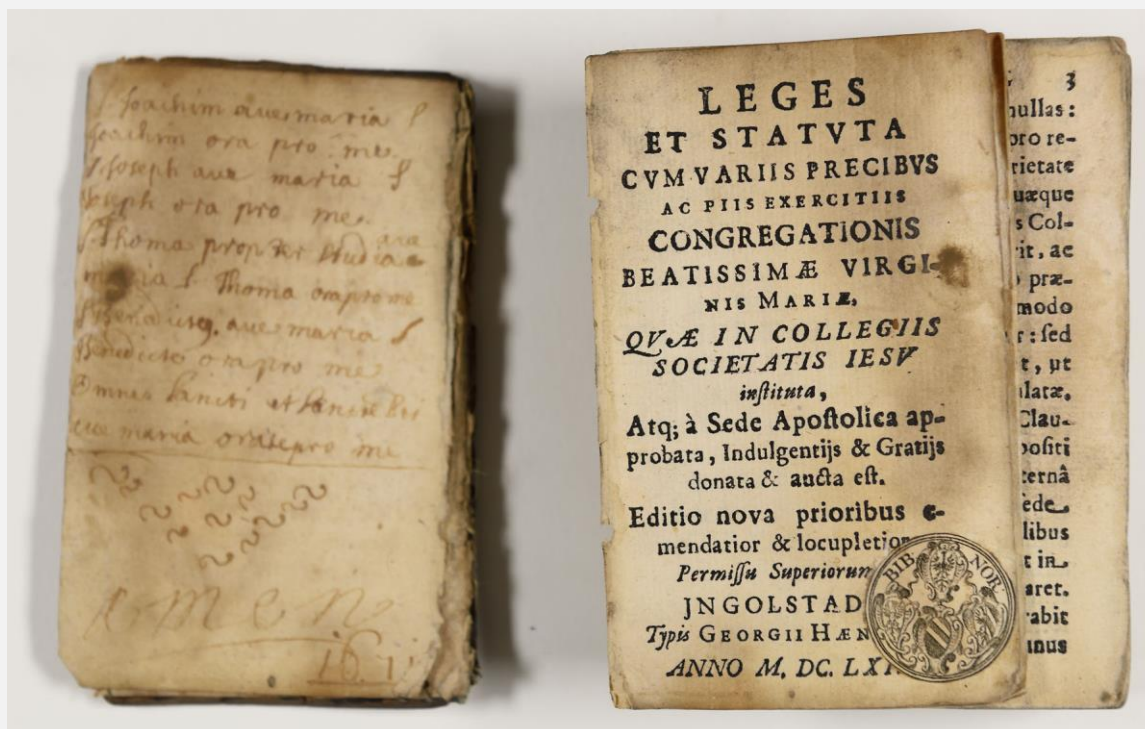 S. Joachim ave maria S
Joachim ora pro me
S. Joseph ave maria S
Joseph ora pro me
S. Thoma propter studia ave
maria S Thoma ora pro me
ave maria S
Benedicte ora pro me
Omnes Sancti et Sancte Dei
ave maria orate pro me
Amen
LEGES
ET STATVTA
CVM VARIIS PRECIBVS
AC PIIS EXERCITIIS
CONGREGATIONIS
BEATISSIMÆ VIRGI-
NIS MARIÆ,
QVÆ IN COLLEGIIS
SOCIETATIS IESV
inſtituta,
Atq; à Sede Apoſtolica ap-
probata, Indulgentijs & Gratijs
donata & aucta eſt.
Editio nova prioribus e-
mendatior & locupletior
Permiſſu Superiorum
JNGOLSTAD
Typis GEORGII HÆN
ANNO M. DC. LXI
BIB NOR
3
nullas:
oro re-
rietate
uæque
s Col-
rit, ac
præ-
modo
r: ſed
t, ut
latæ,
Clau-
poſiti
ternâ
ſede
libus
t in
aret.
rabit
unus